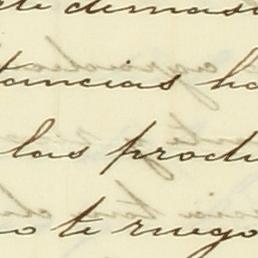 te demas
tancias ha
las produ
o te ruego